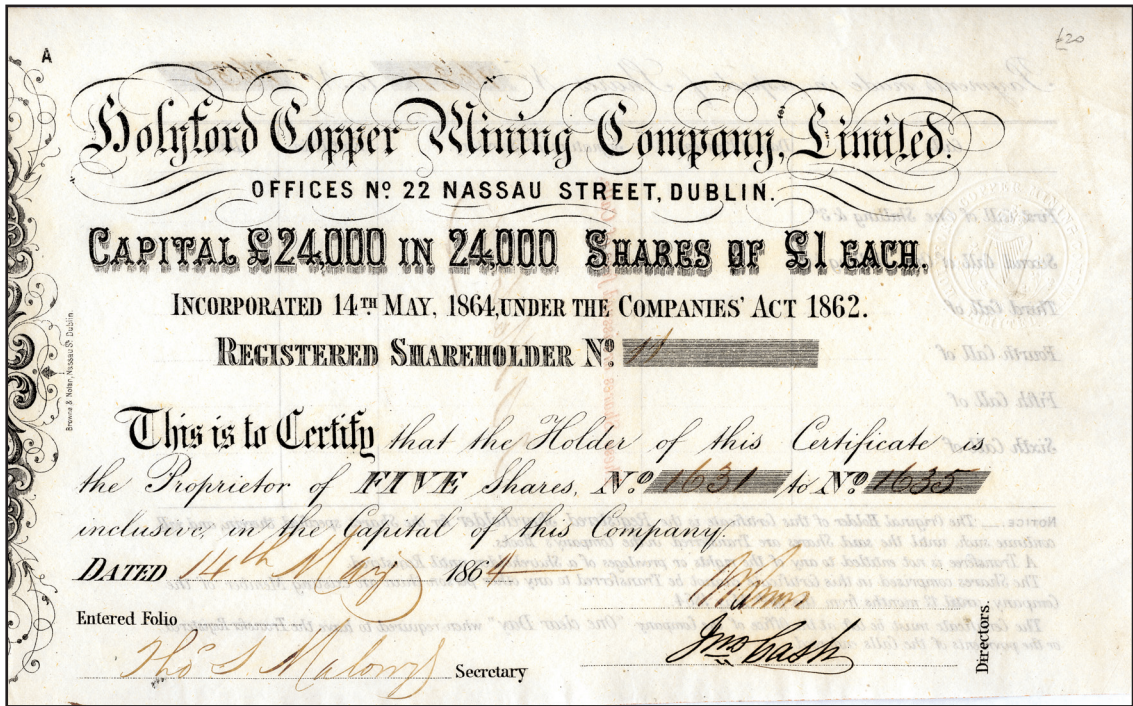 £20
A
Holyford Copper Mining Company, Limited.
OFFICES No. 22 NASSAU STREET, DUBLIN.
CAPITAL £24,000 IN 24,000 SHARES OF £1 EACH.
INCORPORATED 14TH MAY, 1864, UNDER THE COMPANIES' ACT 1862.
REGISTERED SHAREHOLDER No. 11
Browne & Nolan, Nassau St. Dublin.
This is to Certify that the Holder of this Certificate is
the Proprietor of FIVE Shares, No. 1631 to No. 1635
inclusive, in the Capital of this Company.
DATED 14th May 1864
Entered Folio
Thos S. Malony Secretary
Jno Cash
Directors.